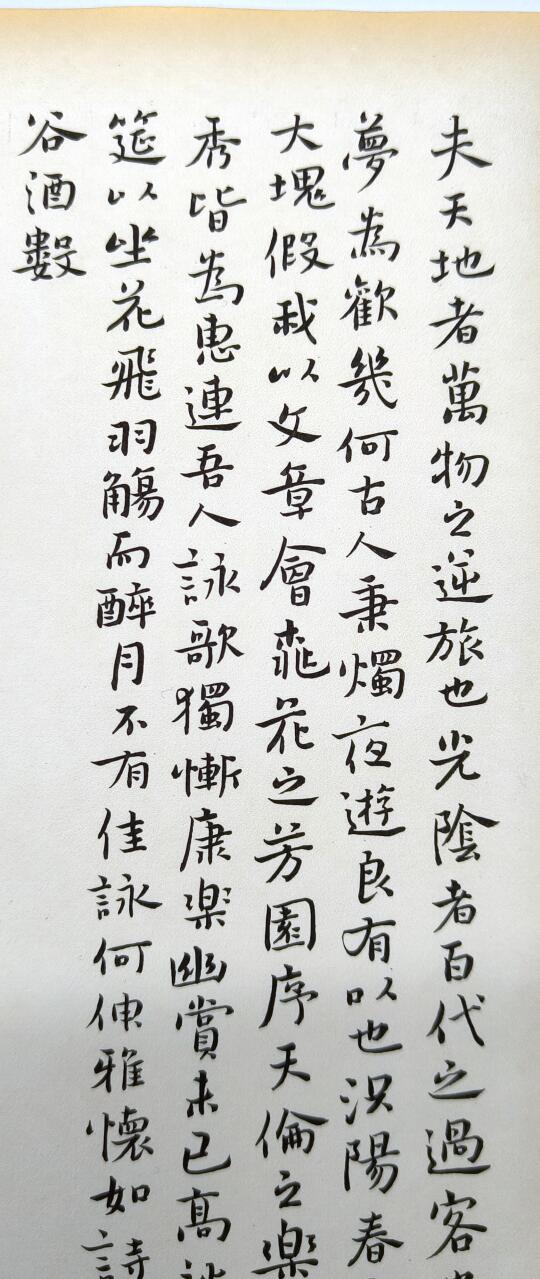 夫天地者萬物之逆旅也光陰者百代之過客
夢為歡幾何古人秉燭夜遊良有以也況陽春
大塊假我以文章會桃花之芳園序天倫之樂
秀皆為惠連吾人詠歌獨慚康樂幽賞未已高
筵以坐花飛羽觴而醉月不有佳詠何伸雅懷如詩
谷酒數